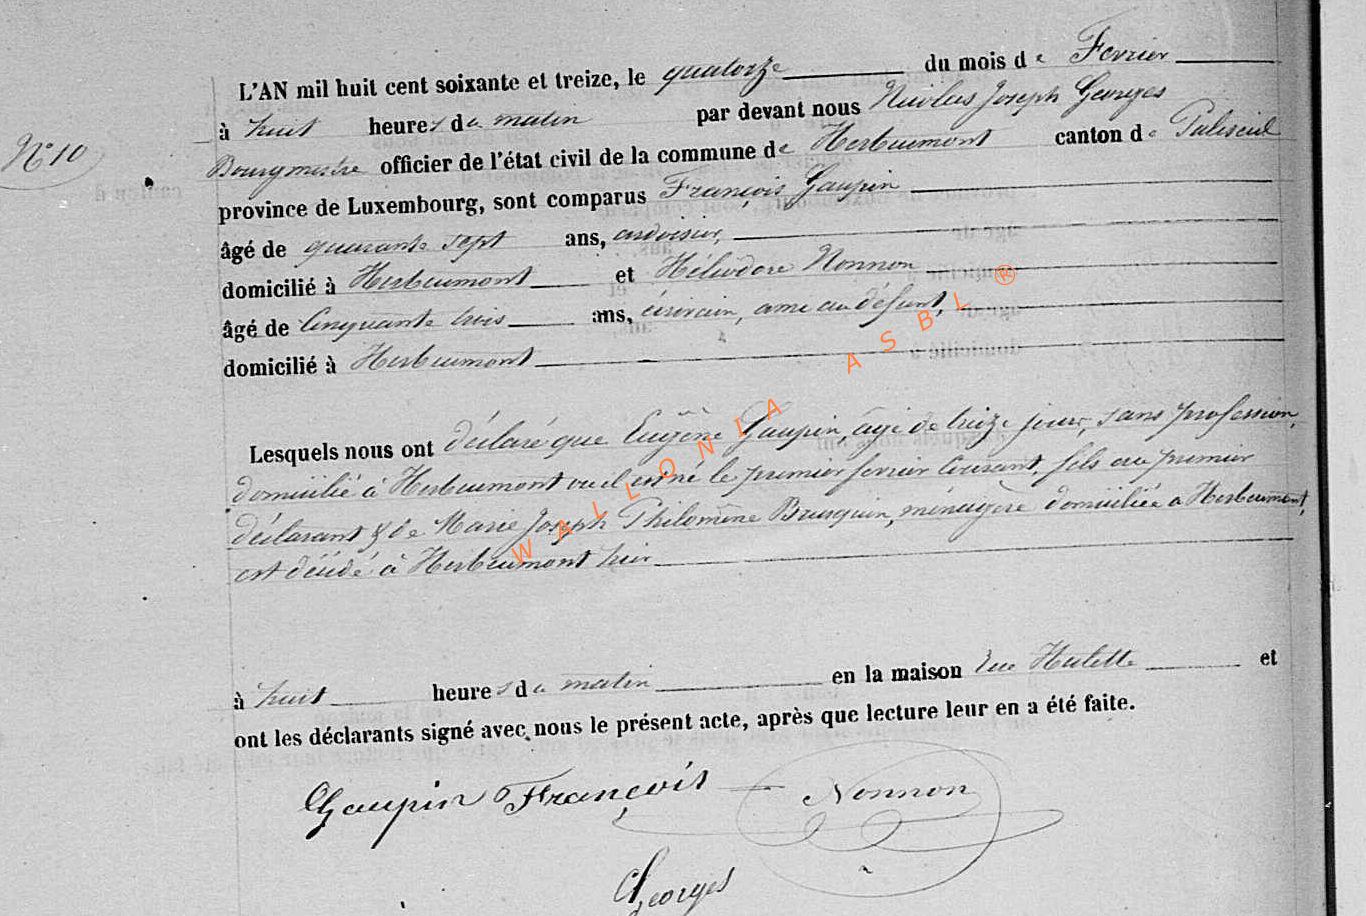 L'AN mil huit cent soixante et treize, le quatorze du mois de Fevrier
à huit heures du matin par devant nous Nicolas Joseph Georges
N° 10
Bourgmestre officier de l'état civil de la commune de Herbeumont canton de Paliseul
province de Luxembourg, sont comparus François Gaupin
âgé de quarante sept ans, ardoisier,
domicilié à Herbeumont et Héliodore Nonnon
âgé de Cinquante trois ans, écrivain, ami au défunt,
domicilié à Herbeumont
Lesquels nous ont déclaré que Eugène Gaupin, âgé de treize jours, sans profession,
domicilié à Herbeumont où il est né le premier fevrier Courant, fils au premier
déclarant & de Marie Joseph Philomène Burquin, ménagère domiciliée a Herbeumont,
est décédé à Herbeumont hier
à huit heures du matin en la maison Rue Hulette et
ont les déclarants signé avec nous le présent acte, après que lecture leur en a été faite.
Gaupin François Nonnon
Georges
WALLONIA ASBL ®